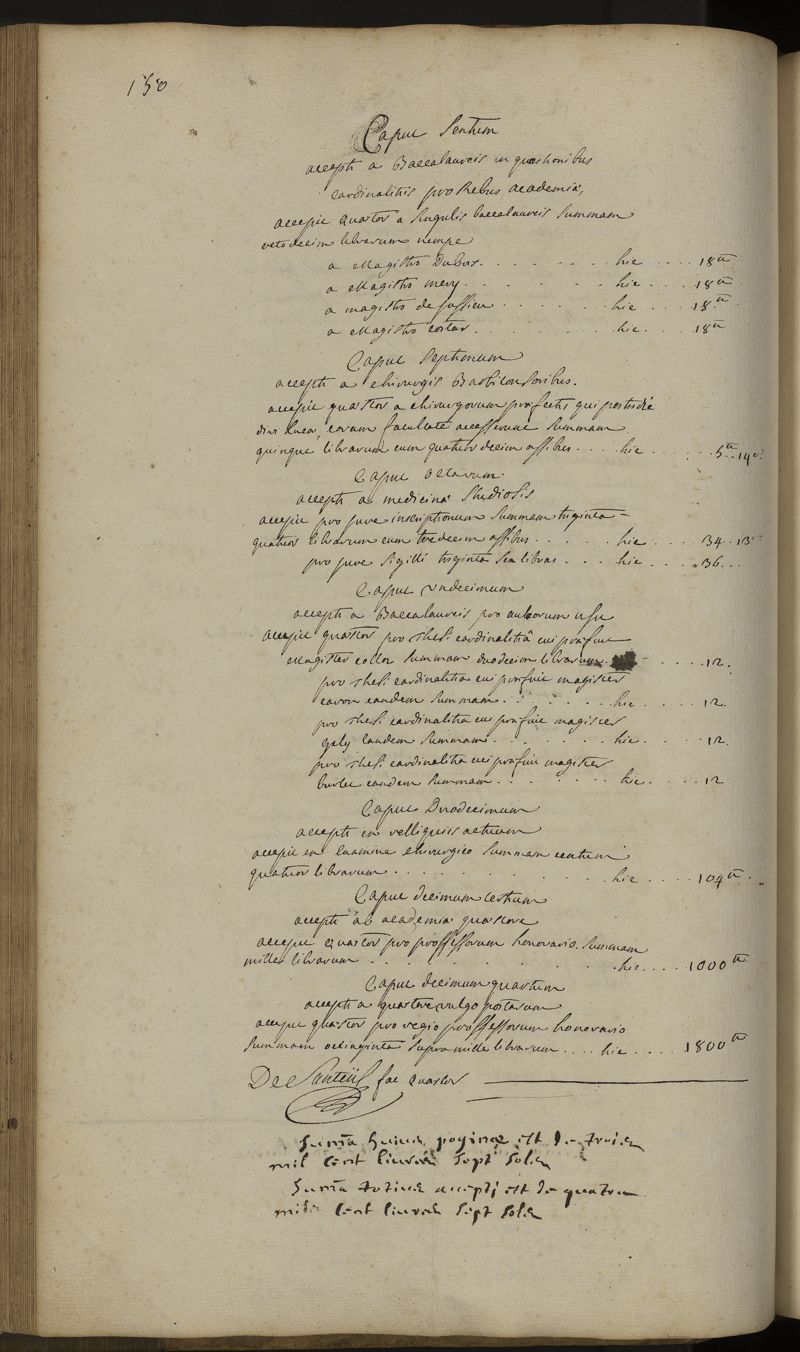 150
Caput Sextum
accepti a Baccalaureis in quæstionibus
cardinalitiis pro Rebus academiæ,
accepit Quæstor a singulis baccalaureis summam
octodecim librarum nempe
a Magistro Dubois. hic 18tt
a Magistro mery. hic 18tt
a magistro de Jussieu hic 18tt
a Magistro costar. hic. 18tt
Caput Septimum
accepti a chirurgis Barbitonsoribus.
accepit quæstor a chirurgorum præfectis qui postridie
diei lucæ, eorum facultate accesserunt summam
quinque librarum cum quatuor decim assibus. hic 5tt 14s
Caput octavum
accepti a medicinæ studiosis
accepit pro jure inscriptionum summam triginta-
quatuor librarum cum tredecim assibus. hic 34. 13s
pro jure sigilli triginta sex libras. hic 36.
Caput undecimum
accepti a Baccalaureis pro aulæorum usu
accepit quæstor pro thesi cardinalitiâ cui præfuit
Magister col summam duodecim librarum 12.
pro thesi cardinalitia cui præfuit magister
caron eandem summam. hic 12.
pro thesi cardinalitia cui præfuit magister
gely eandem summam. hic. 12.
pro thesi cardinalitia cui præfuit magister
eandem summam. hic. 12
Caput Duodecimum
accepti ex relliquiis actuum
accepit ex examine chirurgico summam centum
quatuor librarum. hic. 104tt.
Caput decimum tertium
accepti ab academiæ quæstore
accepit Quæstor pro professorum honorario. summam
mille librarum. hic. 1000tt
Caput decimum quartum
accepti a quæstore vulgo postarum
accepit quæstor pro regio professorum honorario
summam octingenta supra mille librarum. hic 1800tt
De Santeüil fac quæstor
Summa huius paginæ est de trois
mil cent livres sept sols
Summa totius accepti est de quatre
mils cent livres sept sols